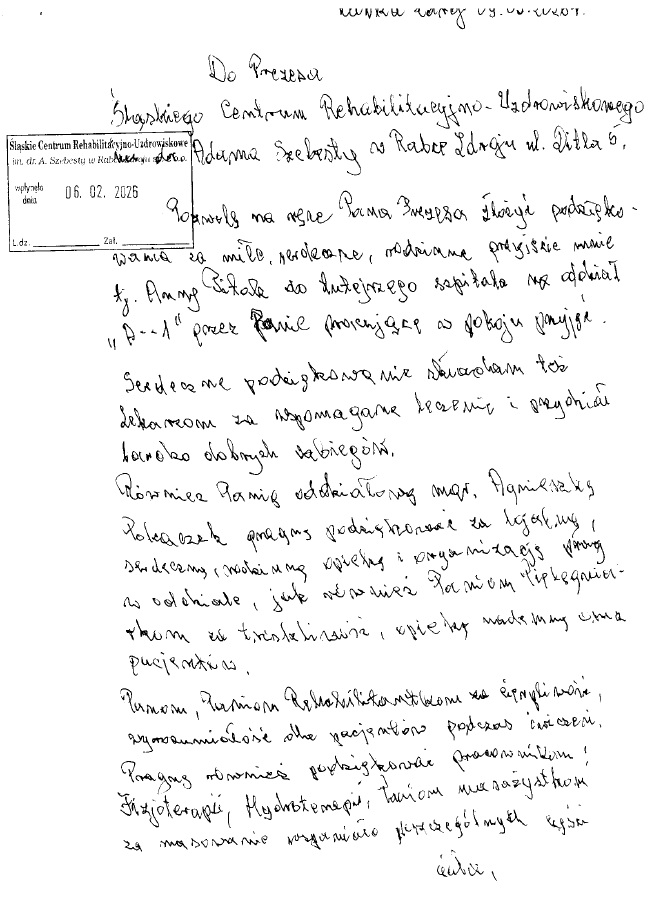 Do Prezesa
Śląskiego Centrum Rehabilitacyjno-Uzdrowiskowego
Adama Szebesty w Rabce Zdroju ul. Dietla 5.
Śląskie Centrum Rehabilitacyjno-Uzdrowiskowe
im. dr. A. Szebesty w Rabce
wpłynęło
dnia 06. 02. 2026
L.dz. Zał.
Pozwolę na ręce Pana Prezesa złożyć podzięko-
wania za miłe, serdeczne, rodzinne przyjęcie mnie
tj. Anny do tutejszego szpitala na oddział
przez Panie pracujące w pokoju przyjęć.
Serdeczne podziękowanie składam też
Lekarzom za wspomagane leczenie i przydział
bardzo dobrych zabiegów.
Również Panią oddziałową mgr. Agnieszkę
pragnę podziękować za
serdeczną, rodzinną opiekę i organizację pracy
w oddziale, jak również Paniom Pielęgniar-
kom za troskliwość, opiekę nademną oraz
pacjentów.
Panom, Paniom Rehabilitantkom za cierpliwość,
wyrozumiałość dla pacjentów podczas ćwiczeń.
Pragnę również podziękować pracownikom:
Fizjoterapii, Hydroterapii, Paniom masażystkom
za masowanie wspaniałe poszczególnych części
ciała,